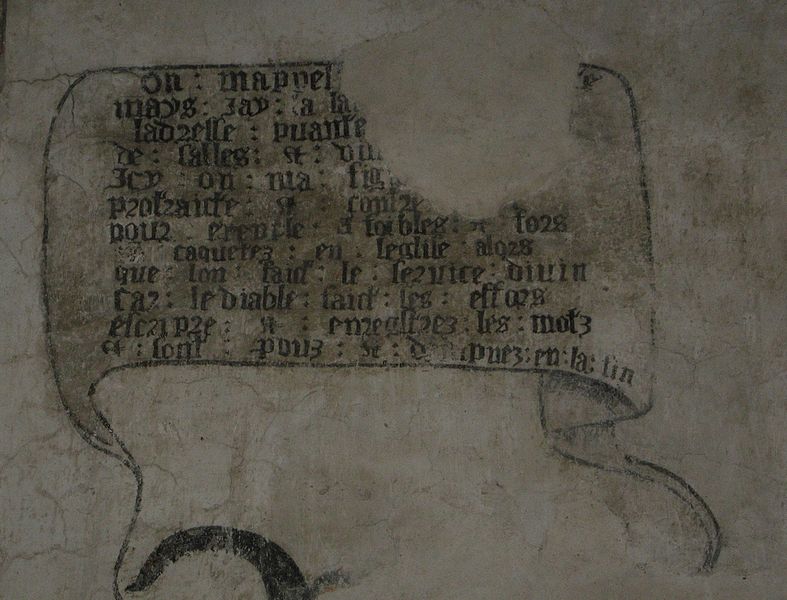 on : mappel
mays : Jay : a la
ladresse : puante
de : salles : et :
Icy : on : ma : fig
protraicte : et contre
pour exemple : et foibles : et fors
caquetez : en : leglise alors
que lon : faict : le : service : divin
Car : le diable : faict : ses : effors
escripre : et : enregistrez : les : motz
et : sont : et : en : la : fin